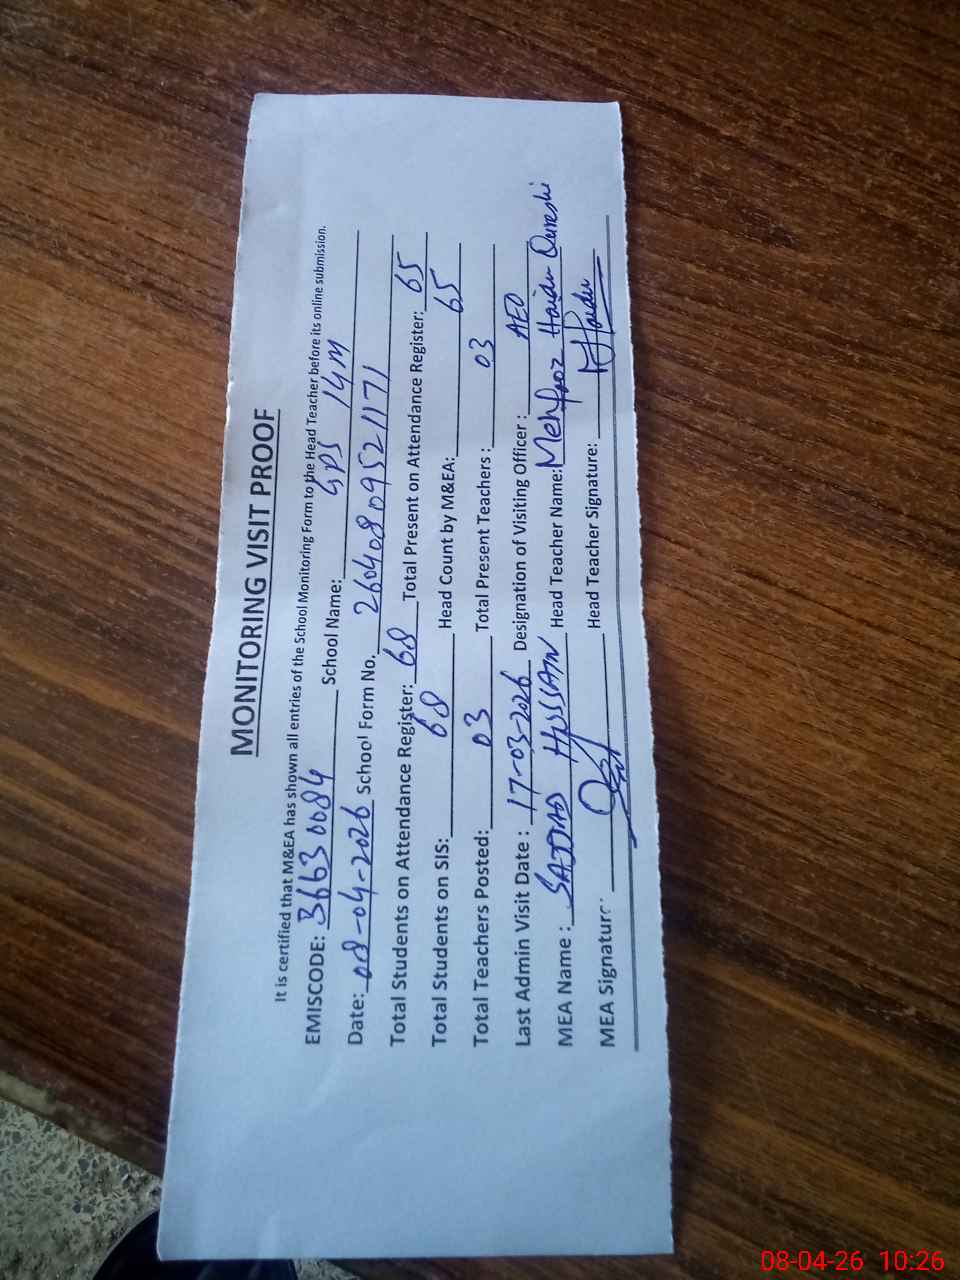 MONITORING VISIT PROOF
It is certified that M&EA has shown all entries of the School Monitoring Form to the Head Teacher before its online submission.
EMISCODE: 36630084 School Name: GPS 14M
Date: 08-04-2026 School Form No. 26040809521171
Total Students on Attendance Register: 68 Total Present on Attendance Register: 65
Total Students on SIS: 68 Head Count by M&EA: 65
Total Teachers Posted: 03 Total Present Teachers: 03
Last Admin Visit Date : 17-03-2026 Designation of Visiting Officer : AEO
MEA Name : SAJJAD HUSSAIN Head Teacher Name: Haider Qureshi
MEA Signature: Head Teacher Signature: Haider
08-04-26 10:26